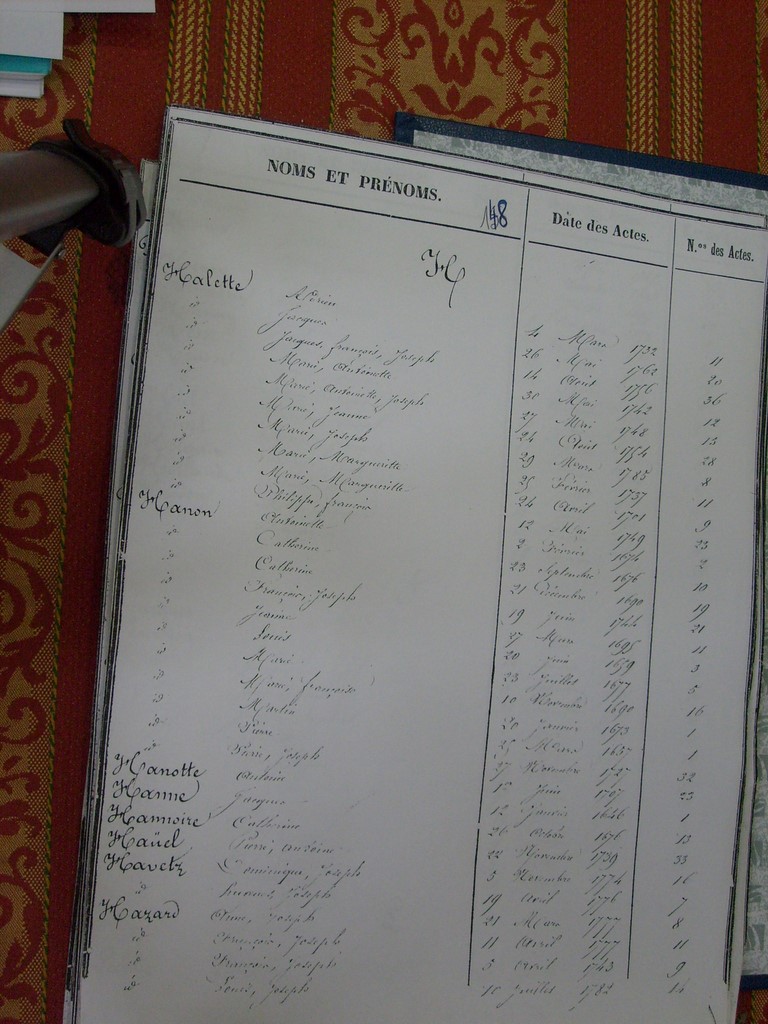 NOMS ET PRÉNOMS. 148 Date des Actes. N.os des Actes.
H
Halette Adrien 4 Mars 1732 11
id Jacques 26 Mai 1762 20
id Jacques, françois, Joseph 14 Août 1756 36
id Marie, Antoinette 30 Mai 1742 12
id Marie, Antoinette, Joseph 27 Mai 1748 13
id Marie, Jeanne 24 Août 1754 28
id Marie, Joseph 29 Mars 1785 8
id Marie, Marguerite 25 Février 1737 11
id Marie, Marguerite 24 Avril 1701 9
id Philippe, françois 12 Mai 1749 23
Hanon Antoinette 2 Février 1674 2
id Catherine 23 Septembre 1676 10
id Catherine 21 Décembre 1690 19
id François, Joseph 19 Juin 1744 21
id Jeanne 27 Mars 1695 11
id Louis 20 Juin 1659 3
id Marie 23 Juillet 1677 5
id Marie, françoise 10 Novembre 1690 16
id Martin 20 Janvier 1673 1
id Pierre 25 Mars 1657 1
id Pierre, Joseph 27 Novembre 1727 32
Hanotte Antoine 17 Juin 1707 23
Hanne Jacques 12 Janvier 1646 1
Hannoire Catherine 26 Octobre 1676 13
Haüel Pierre, antoine 22 Novembre 1739 33
Havetz Dominique, Joseph 3 Novembre 1774 16
id Joseph 19 Avril 1776 7
Hazard Anne, Joseph 21 Mars 1777 8
id François, Joseph 11 Avril 1777 11
id François, Joseph 5 Avril 1743 9
id Louis, Joseph 10 Juillet 1782 14